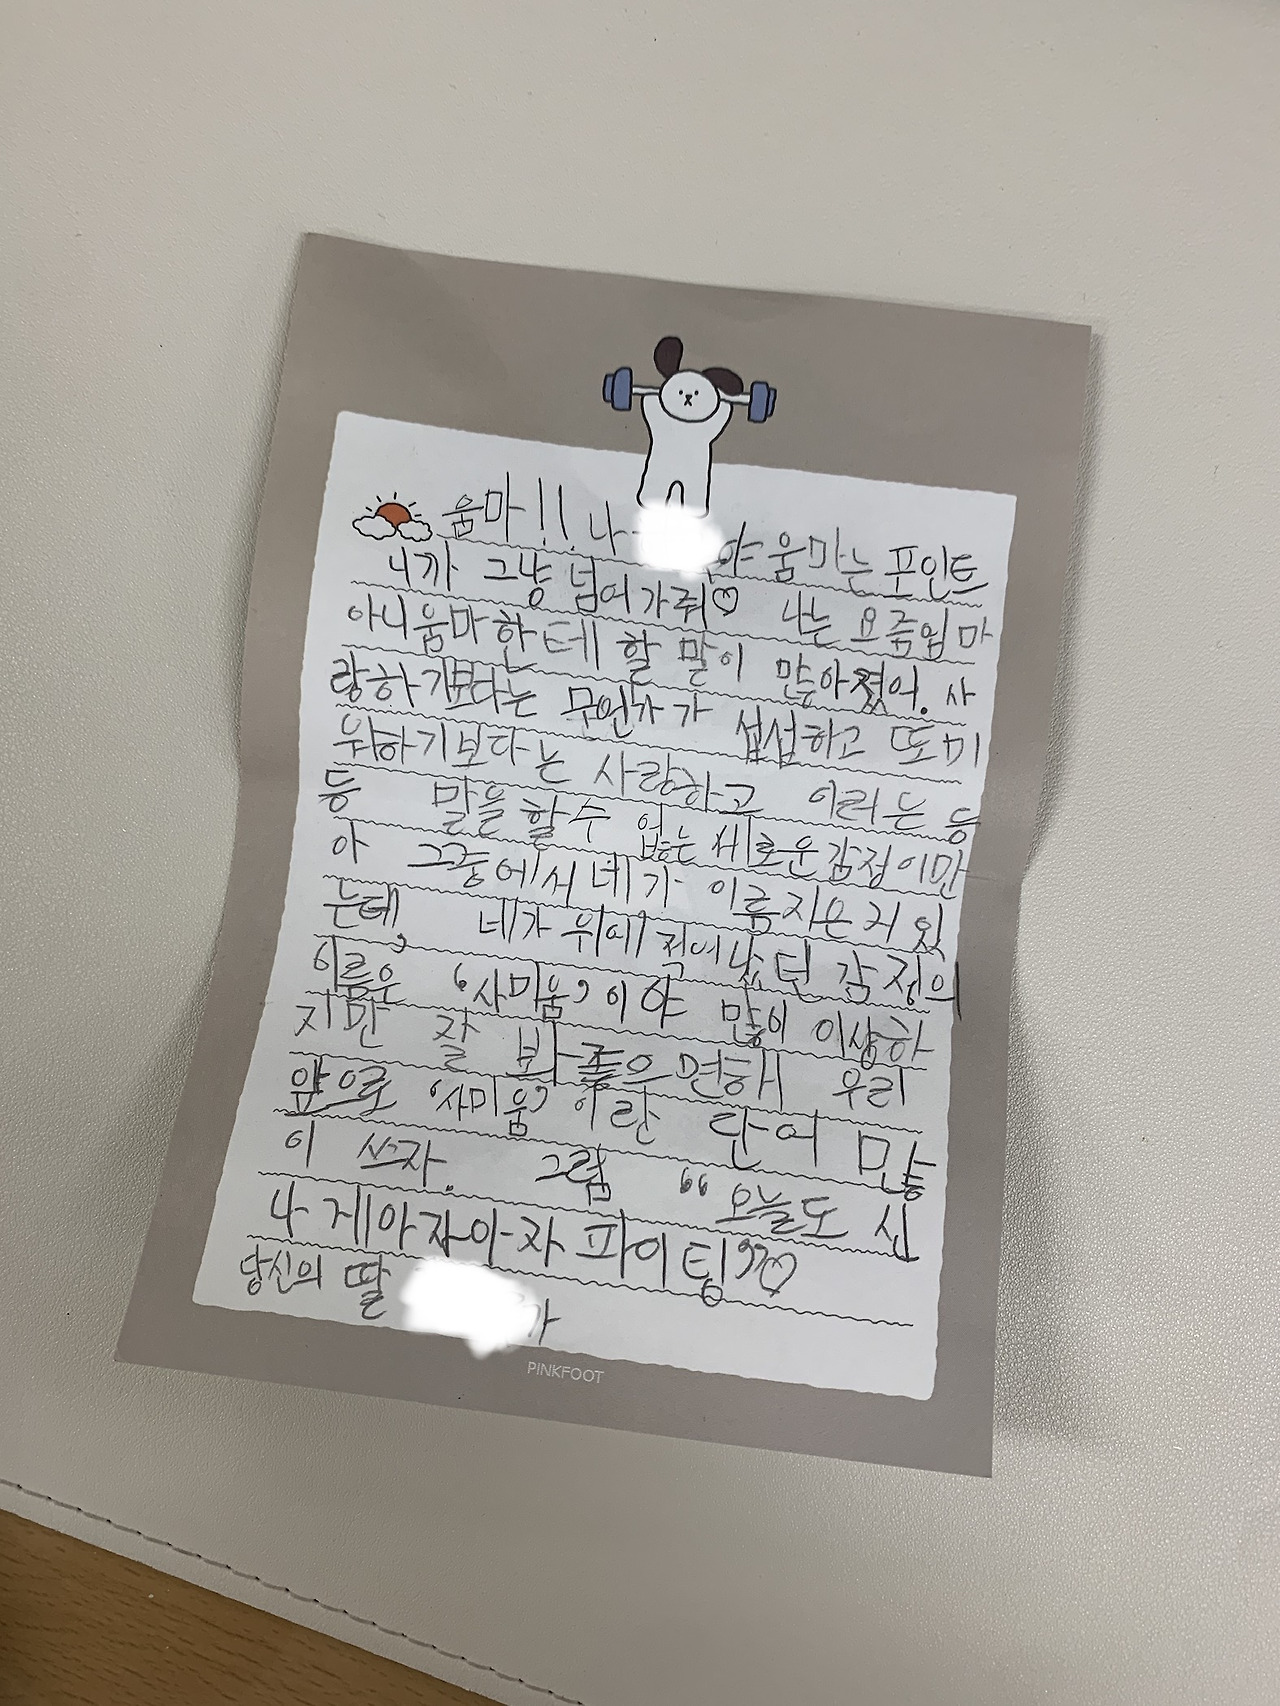 움마!! 나 야 움마는 포인트
니까 그냥 넘어가줘♡ 나는 요즘엄마
아니움마한테 할 말이 많아졌어. 사
랑하기보다는 무언가가 섭섭하고 또 미
워하기보다는 사랑하고 이러는 등
등 말을할수 없는 새로운감정이만
아 그중에서 네가 이름 지은 거 있
는데, 네가 위에 적어놨던 감정의
이름은 '사미움' 이야 많이 이상하
지만 잘 봐줬으면해 우리
앞으로 '사미움' 이란 단어 많
이 쓰자. 그럼 "오늘도 신
나게아자아자 파이팅"♡
당신의 딸 가
PINKFOOT